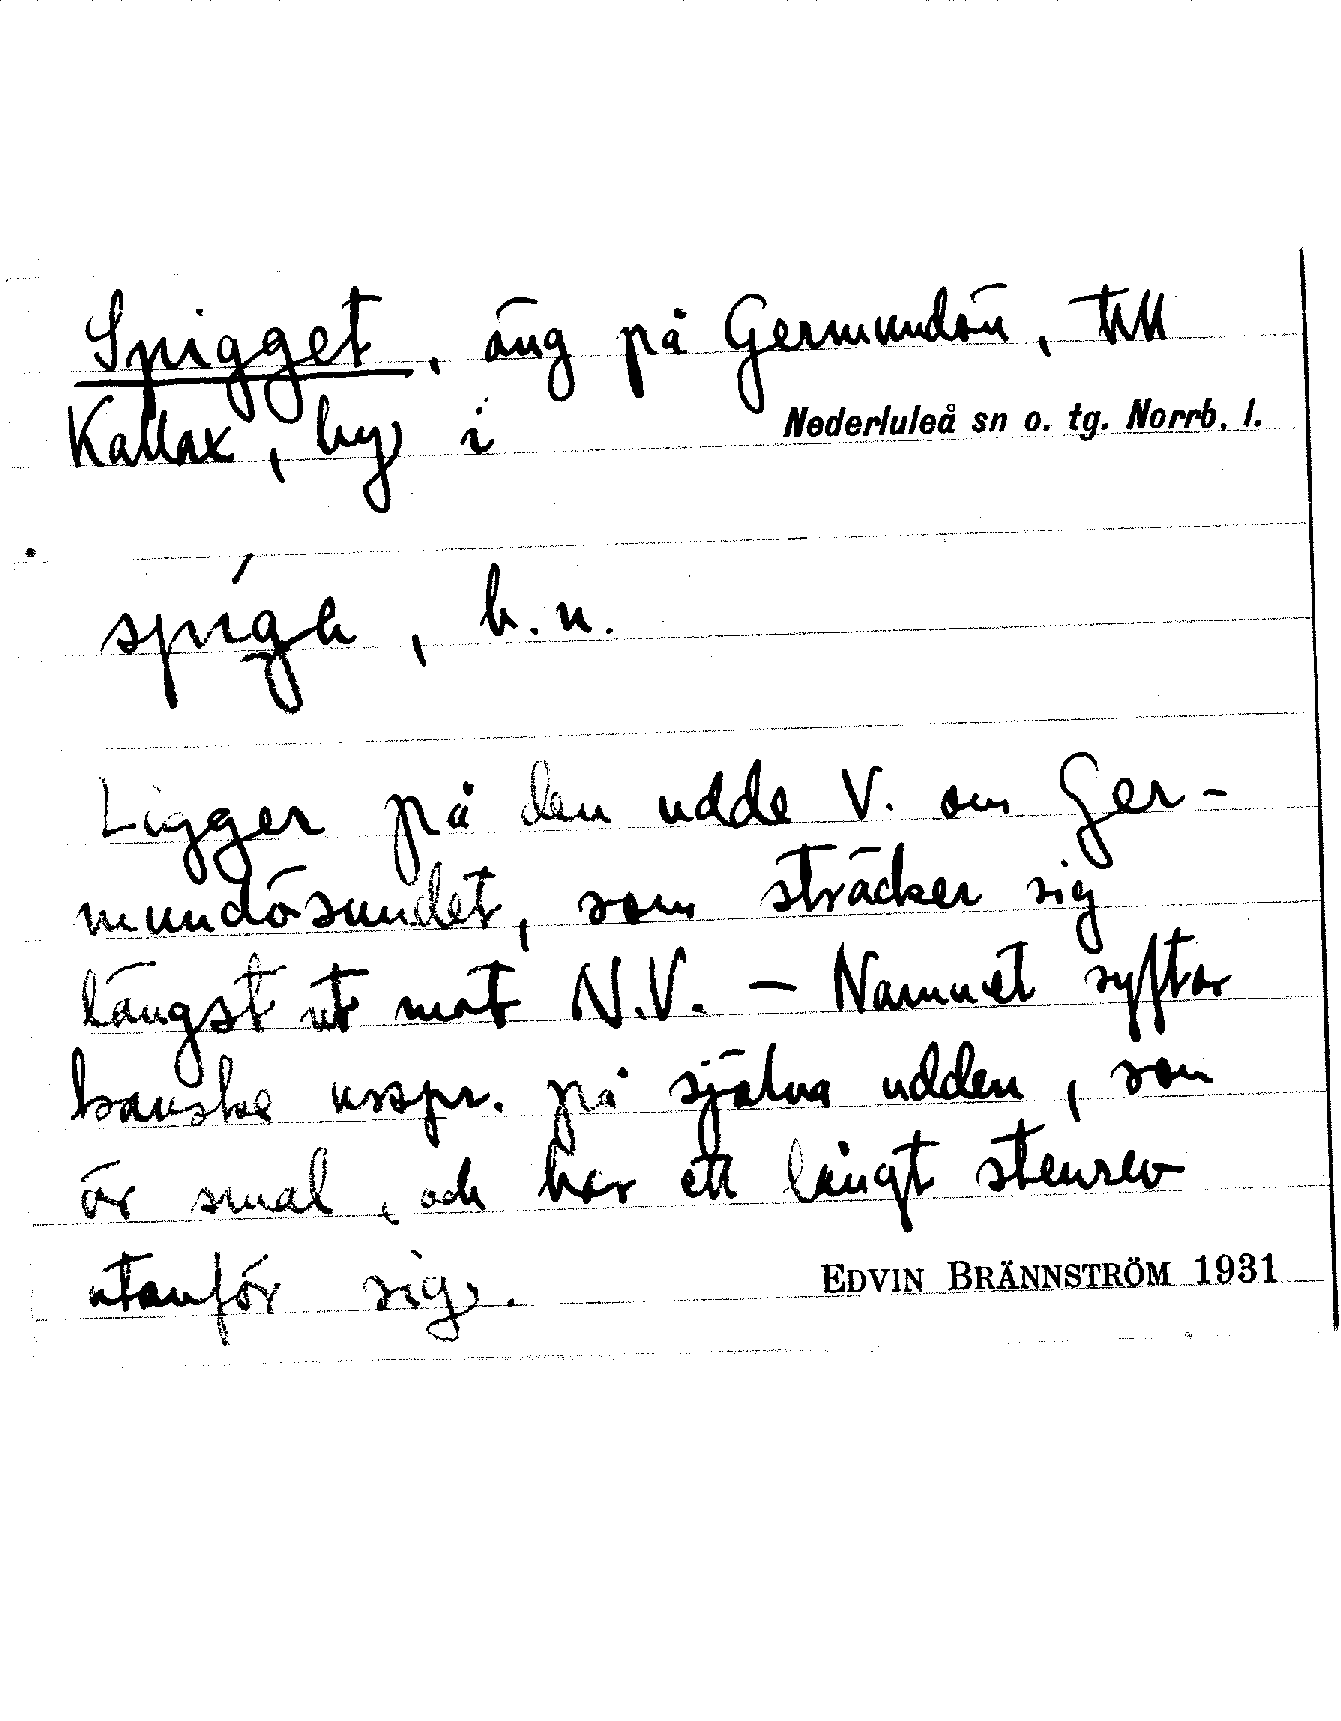 Spigget, äng på Germundön, till
Kallax, by i Nederluleå sn o. tg. Norrb. l.
b. n.
Ligger på den udde V. om Ger-
mundösundet, som sträcker sig
längst ut mot N.V. — Namnet syftar
kanske urspr. på själva udden, som
är smal, och har ett långt stenrev
utanför sig. EDVIN BRÄNNSTRÖM 1931